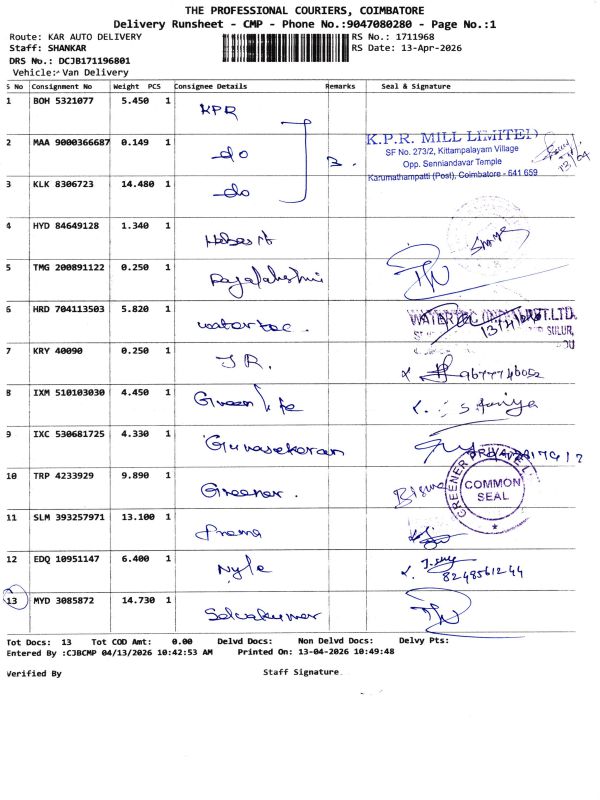 THE PROFESSIONAL COURIERS, COIMBATORE
Delivery Runsheet - CMP - Phone No.:9047080280 - Page No.:1
Route: KAR AUTO DELIVERY
RS No.: 1711968
Staff: SHANKAR
RS Date: 13-Apr-2026
DRS No.: DCJB171196801
Vehicle: Van Delivery
S No Consignment No Weight PCS Consignee Details Remarks Seal & Signature
1 BOH 5321077 5.450 1 KPR
2 MAA 9000366687 0.149 1 do 3.
K.P.R. MILL LIMITED
SF No. 273/2, Kittampalayam Village
Opp. Senniandavar Temple
Karumathampatti (Post), Coimbatore - 641 659
13/04
3 KLK 8306723 14.480 1 do
4 HYD 84649128 1.340 1
5 TMG 200891122 0.250 1 Rajalakshmi
6 HRD 704113503 5.820 1 watertec.
WATERTEC PVT.LTD.
SULUR,
7 KRY 40090 0.250 1 J R. 9677746052
8 IXM 510103030 4.450 1 Green life
9 IXC 530681725 4.330 1 Gunasekaran
10 TRP 4233929 9.890 1 Greener.
GREENER PRIVATE L
COMMON
SEAL
11 SLM 393257971 13.100 1 Prema
12 EDQ 10951147 6.400 1 Nyle
8248561244
13 MYD 3085872 14.730 1 Selvakumar
Tot Docs: 13 Tot COD Amt: 0.00 Delvd Docs: Non Delvd Docs: Delvy Pts:
Entered By :CJBCMP 04/13/2026 10:42:53 AM Printed On: 13-04-2026 10:49:48
Verified By
Staff Signature